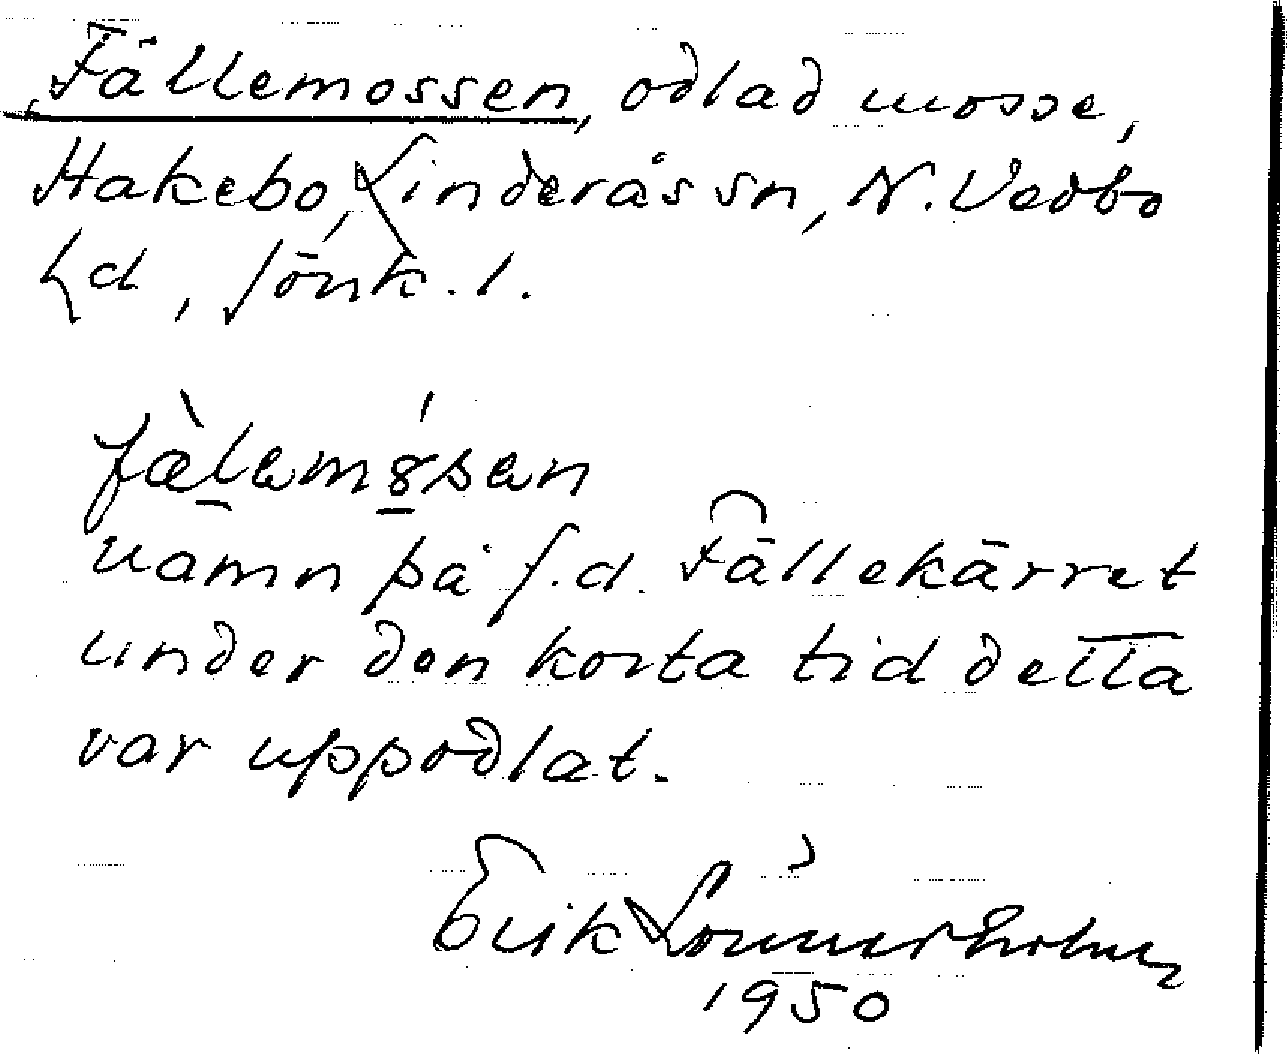 Fällemossen, odlad mosse,
Hakebo, Linderås sn, N. Vedbo
hd, Jönk. l.
fæ̀lamósan
namn på f.d. Fällekärret
under den korta tid detta
var uppodlat.
Erik Lönnerholm
1950